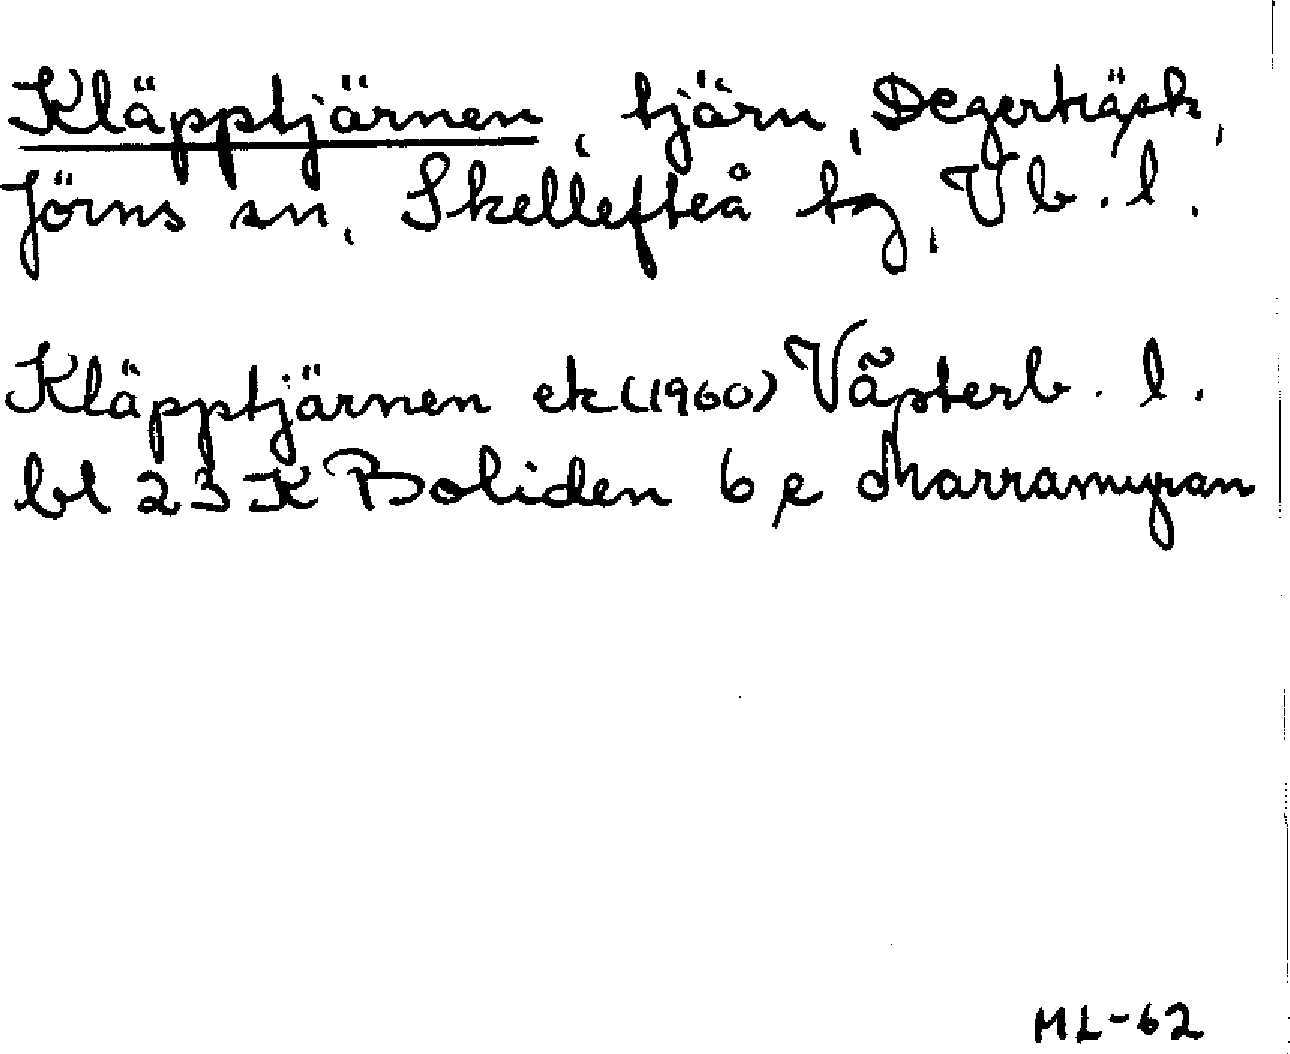 Kläpptjärnen, tjärn, Degerträsk,
Jörns sn, Skellefteå tg, Vb. l.
Kläpptjärnen ek (1960) Västerb. l.
bl 23 K Boliden 6 e Marramyran
ML-62